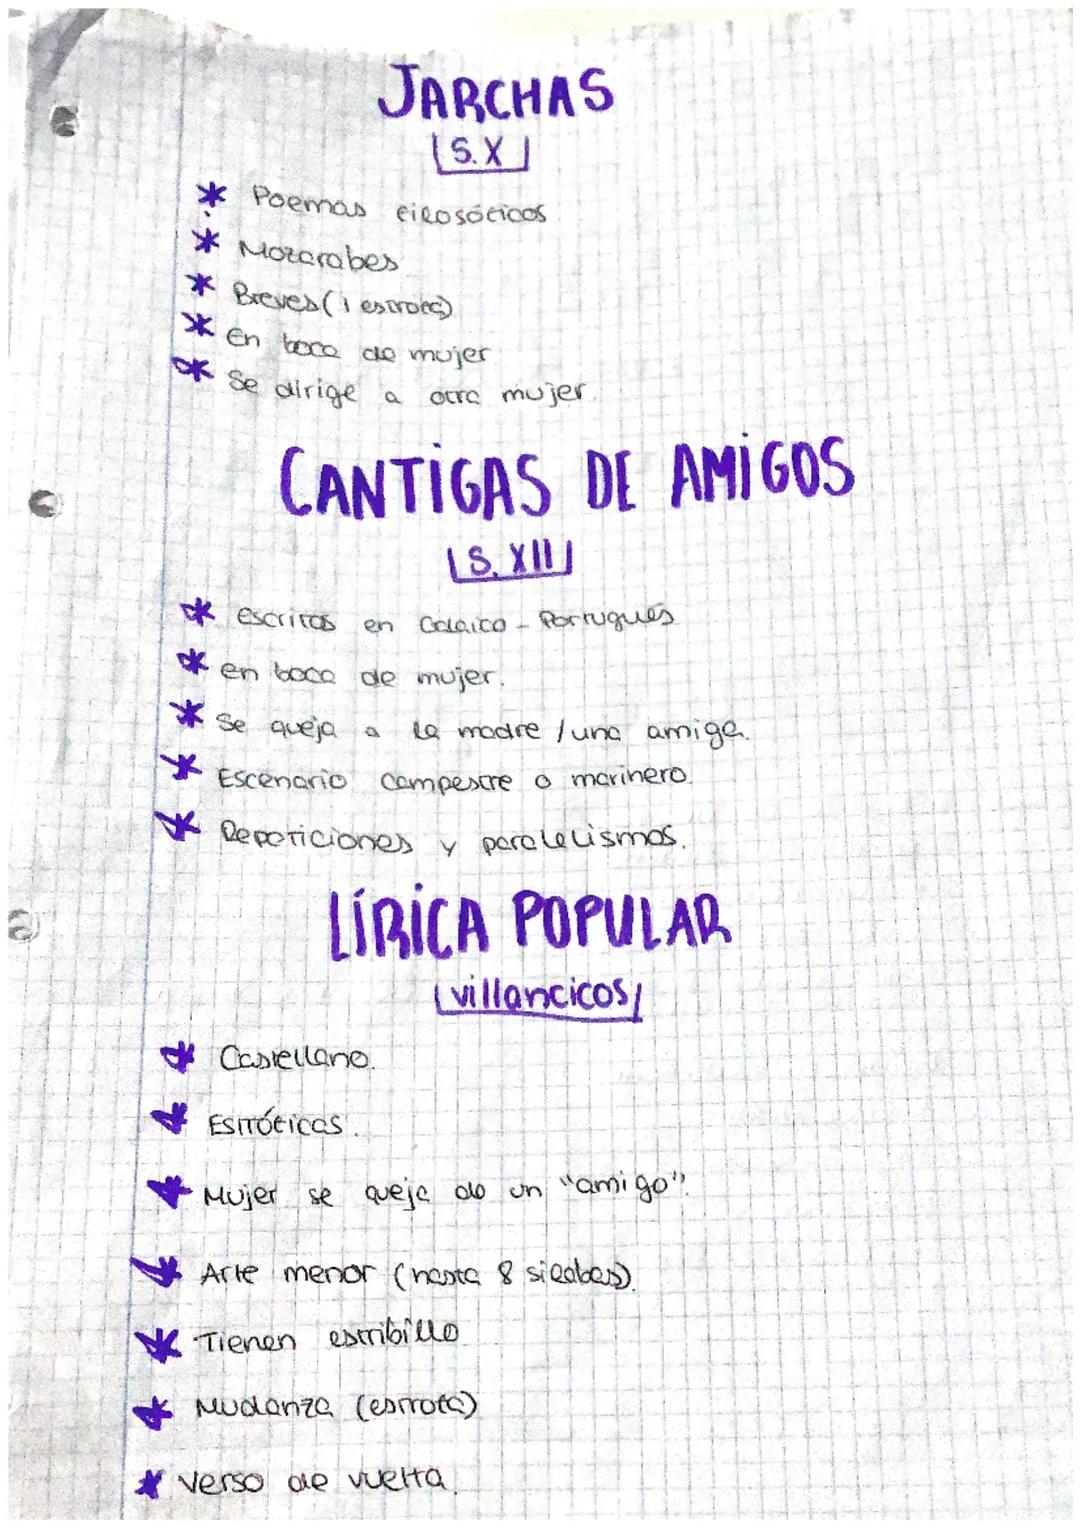 JARCHAS
S.X
* Poemas filosóficos
* Mozarabes
* Breves (1 estrofa)
* En boca de mujer
* Se dirige a otra mujer.
CANTIGAS DE AMIGOS
S. XII
* escritas en Galaico - Portugués
* en boca de mujer.
* Se queja a la madre / una amiga.
* Escenario campestre o marinero.
* Repeticiones y paralelismos.
LÍRICA POPULAR
villancicos
* Castellano.
* Estróficas.
* Mujer se queja de un "amigo".
* Arte menor (hasta 8 sílabas).
* Tienen estribillo
* Mudanza (estrofa)
* verso de vuelta.